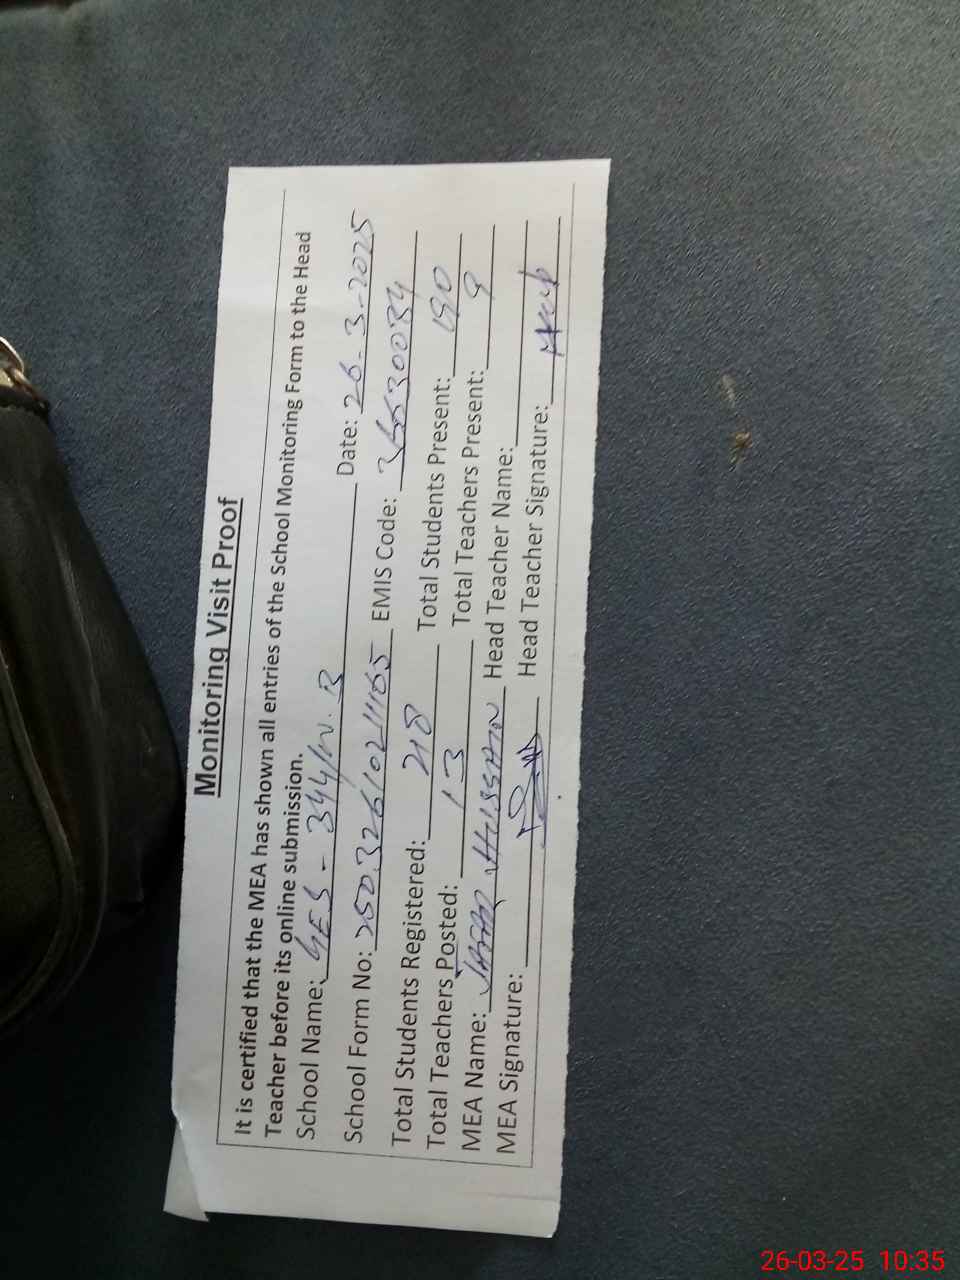 Monitoring Visit Proof
It is certified that the MEA has shown all entries of the School Monitoring Form to the Head
Teacher before its online submission.
School Name: GES - 344/W.B Date: 26-3-2025
School Form No: 25032610211165 EMIS Code: 36630084
Total Students Registered: 218 Total Students Present: 190
Total Teachers Posted: 13 Total Teachers Present: 9
MEA Name: JAFAR HUSSAIN Head Teacher Name:
MEA Signature: Head Teacher Signature:
26-03-25 10:35